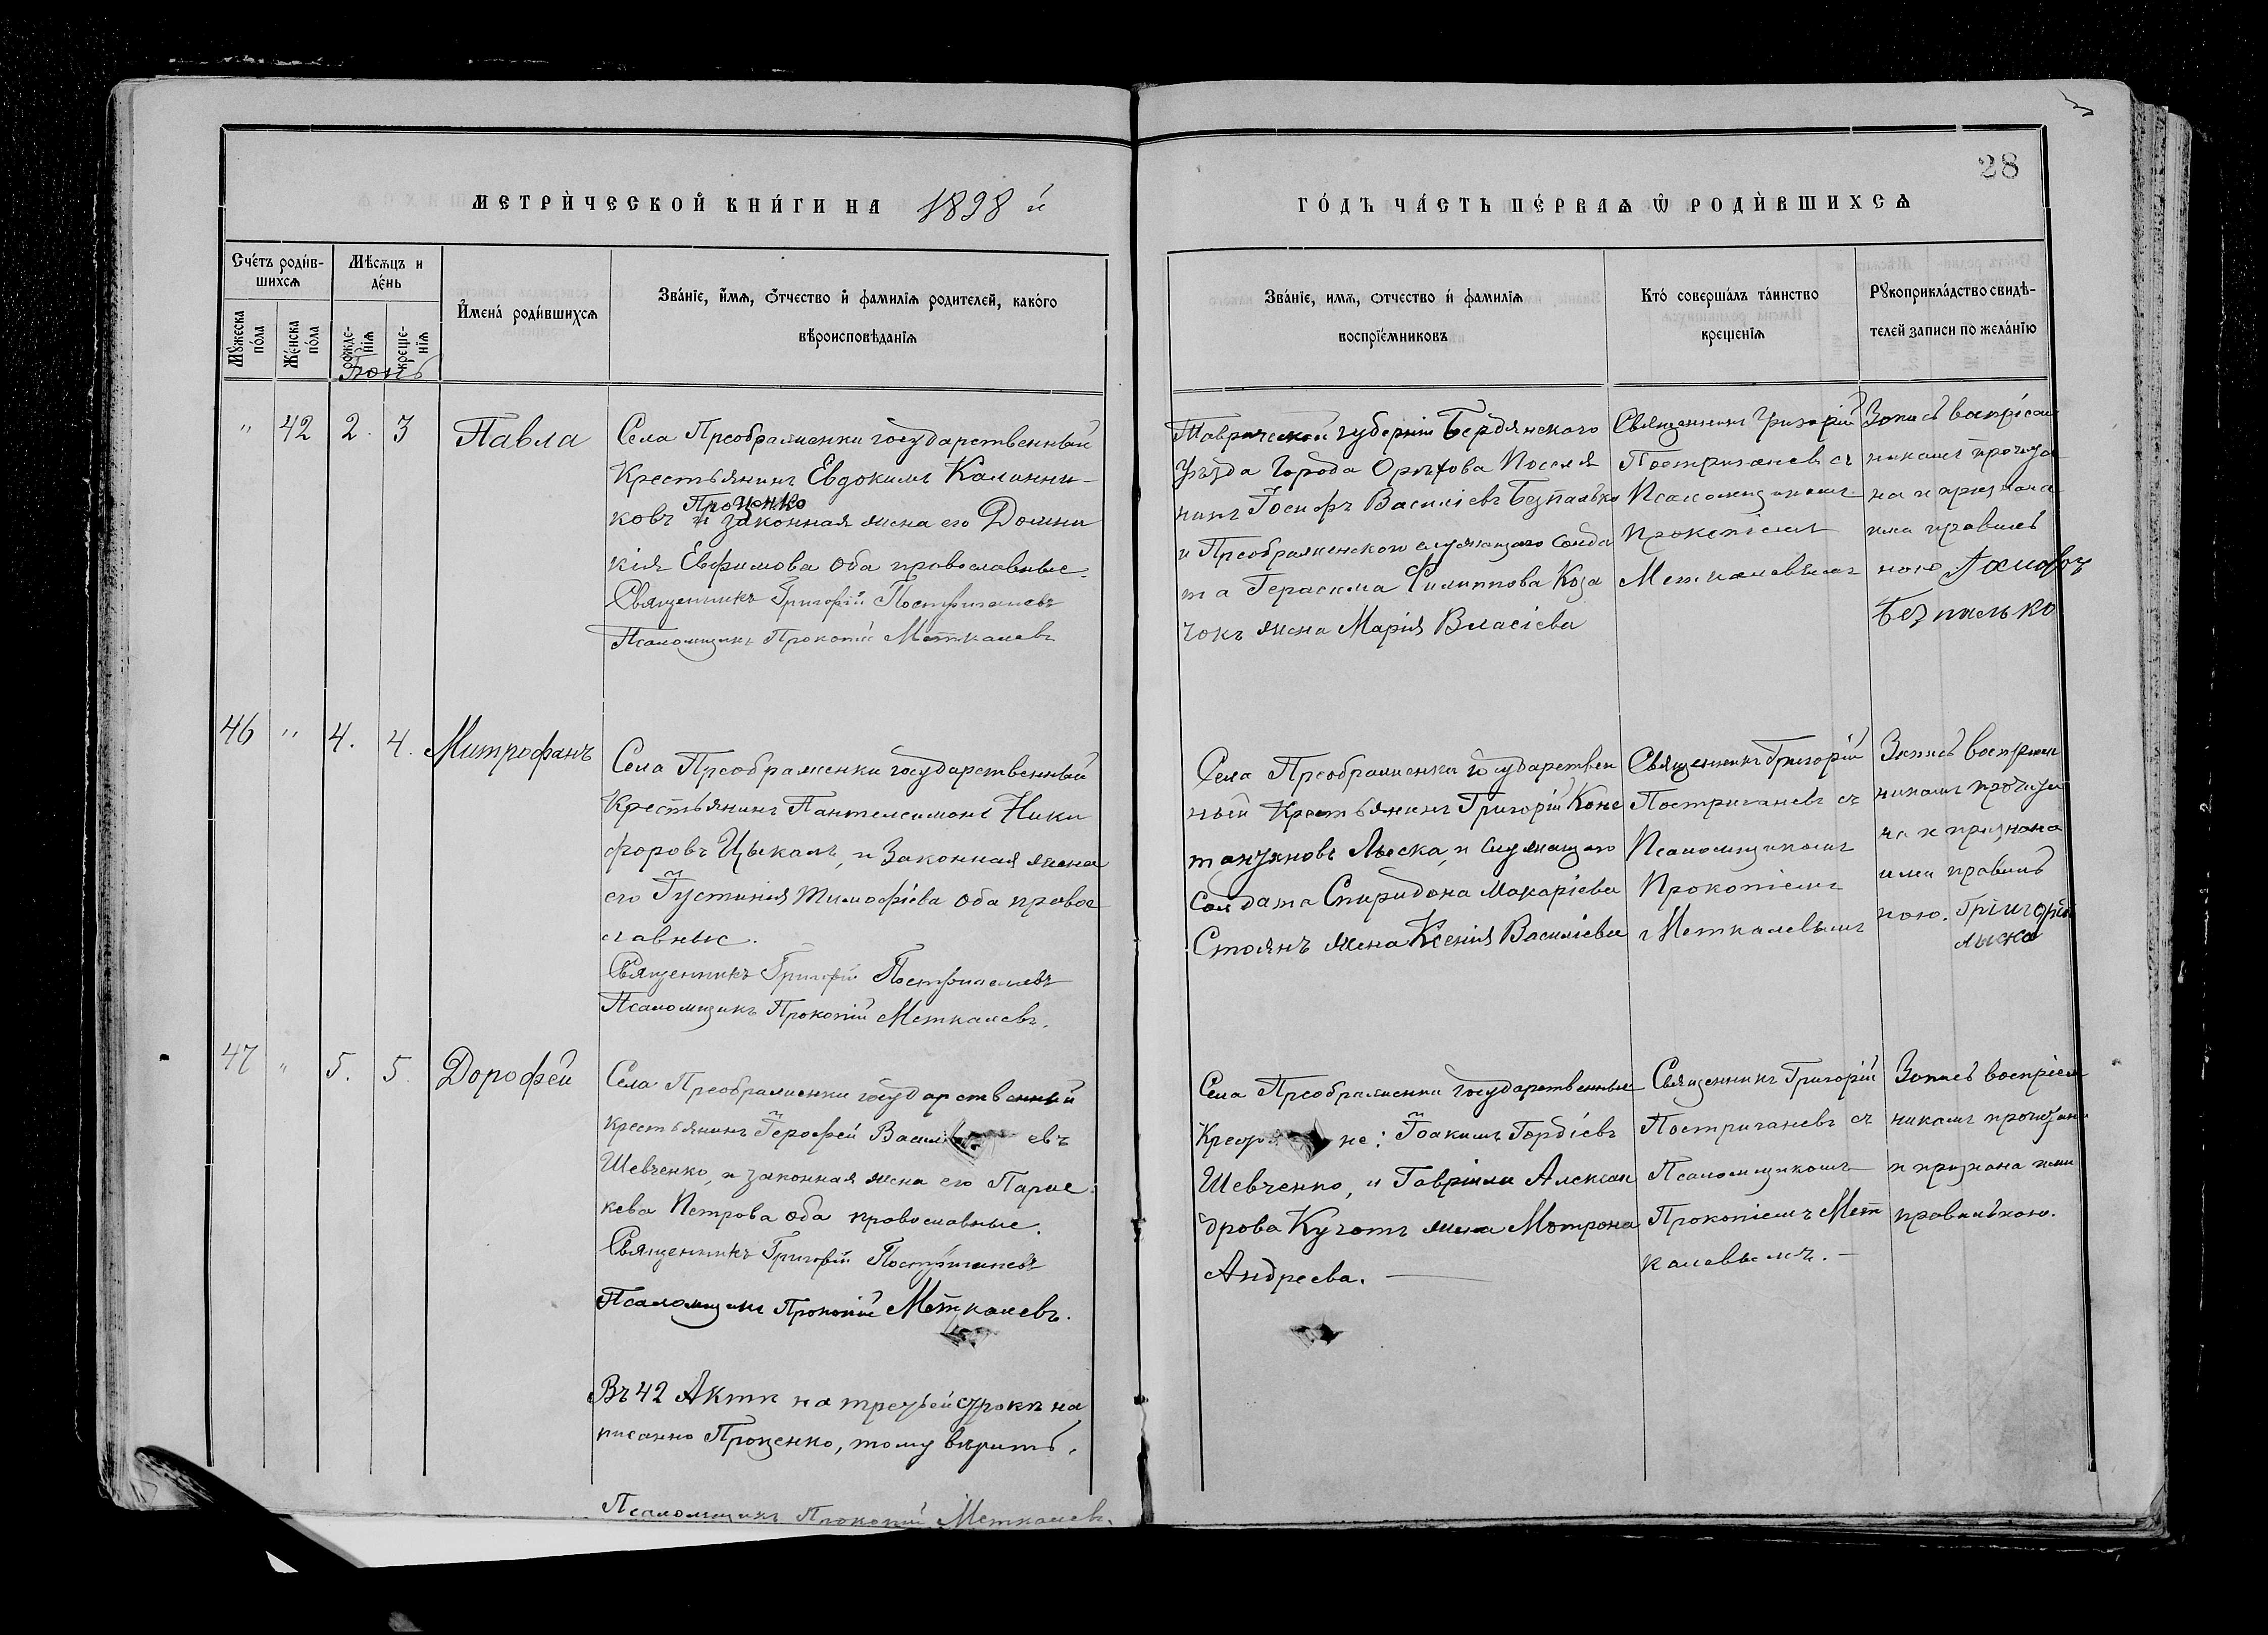 28
МЕТРИ́ЧЕСКОЙ КНИ́ГИ НА 1898 й
ГО́ДЪ ЧА́СТЬ ПЕ́РВАѦ Ѡ РОДИ́ВШИХСѦ
Сче́тъ роди́в-
шихсѧ
Мѣ́сѧцъ и
де́нь
Мꙋ́жеска
по́ла
Же́нска
по́ла
рожде-
нїѧ
креще-
нїѧ
Имена́ роди́вшихсѧ
Зва́нїе, и́мѧ, о́тчество и фами́лїѧ роди́телей, како́го
вѣроисповѣ́данїѧ
Зва́нїе, имѧ, отчество и́ фами́лїѧ
воспрїе́мниковъ
Кто́ соверша́лъ та́инство
креще́нїѧ
Рꙋкоприкла́дство свидѣ́-
телей записи по жела́нїю
Іюнь
" 42 2. 3 Павла
Села Преображенки государственный
Крестьянинъ Евдокимъ Калинни-
Проценко
ковъ и законная жена его Домни
кія Евфимова оба православные.
Священникъ Григорій Постриганевъ
Псаломщикъ Прокопій Меткалевъ
Таврической губерніи Бердянскаго
Уѣзда Города Орѣхова Поселя
нинъ Іосифъ Василіевъ Безпалько
и Преображенского служащаго солда
та Герасима Филиппова Коза
чокъ жена Марія Власіева
Священникъ Григорій
Постриганевъ съ
Псаломщикомъ
Прокопіемъ
Меткалевымъ
Запись воспріем
никамъ прочита
на и признана
ими правиль
ною
Безпалько
46 " 4. 4. Митрофанъ
Села Преображенки государственный
Крестьянинъ Пантелеимонъ Ники
форовъ Цыкалъ, и Законная жена
его Іустинія Тимофіева оба правос
лавные.
Священникъ Григорій Постриганевъ
Псаломщикъ Прокопій Меткалевъ.
Села Преображенки государствен
ный Крестьянинъ Григорій Конс
тантиновъ Лыска, и служащаго
солдата Спиридона Макаріева
Стоянъ жена Ксенія Василіева
Священникъ Григорій
Постриганевъ съ
Псаломщикомъ
Прокопіемъ
Меткалевымъ
Запись воспріем
никамъ прочита
на и признана
ими правиль
ною. Григорій
лыска
47 " 5. 5. Дорофей
Села Преображенки государственный
крестьянинъ Герофей Василіевъ
Шевченко, и законная жена его Парас
кева Петрова оба православные.
Священникъ Григорій Постриганевъ
Псаломщикъ Прокопій Меткалевъ.
Села Преображенки государственные
не: Іоакимъ Гордіевъ
Шевченко, и Гавріила Алексан
дрова Кучотъ жена Мотрона
Андреева.
Священникъ Григорій
Постриганевъ съ
Псаломщикомъ
Прокопіемъ Мет
калевымъ.
Запись воспріем
никамъ прочитана
и признана ими
правильною.
Въ 42 Актѣ на третьей строкѣ на
писанно Проценко, тому вѣрить.
Псаломщикъ Прокопій Меткалевъ.